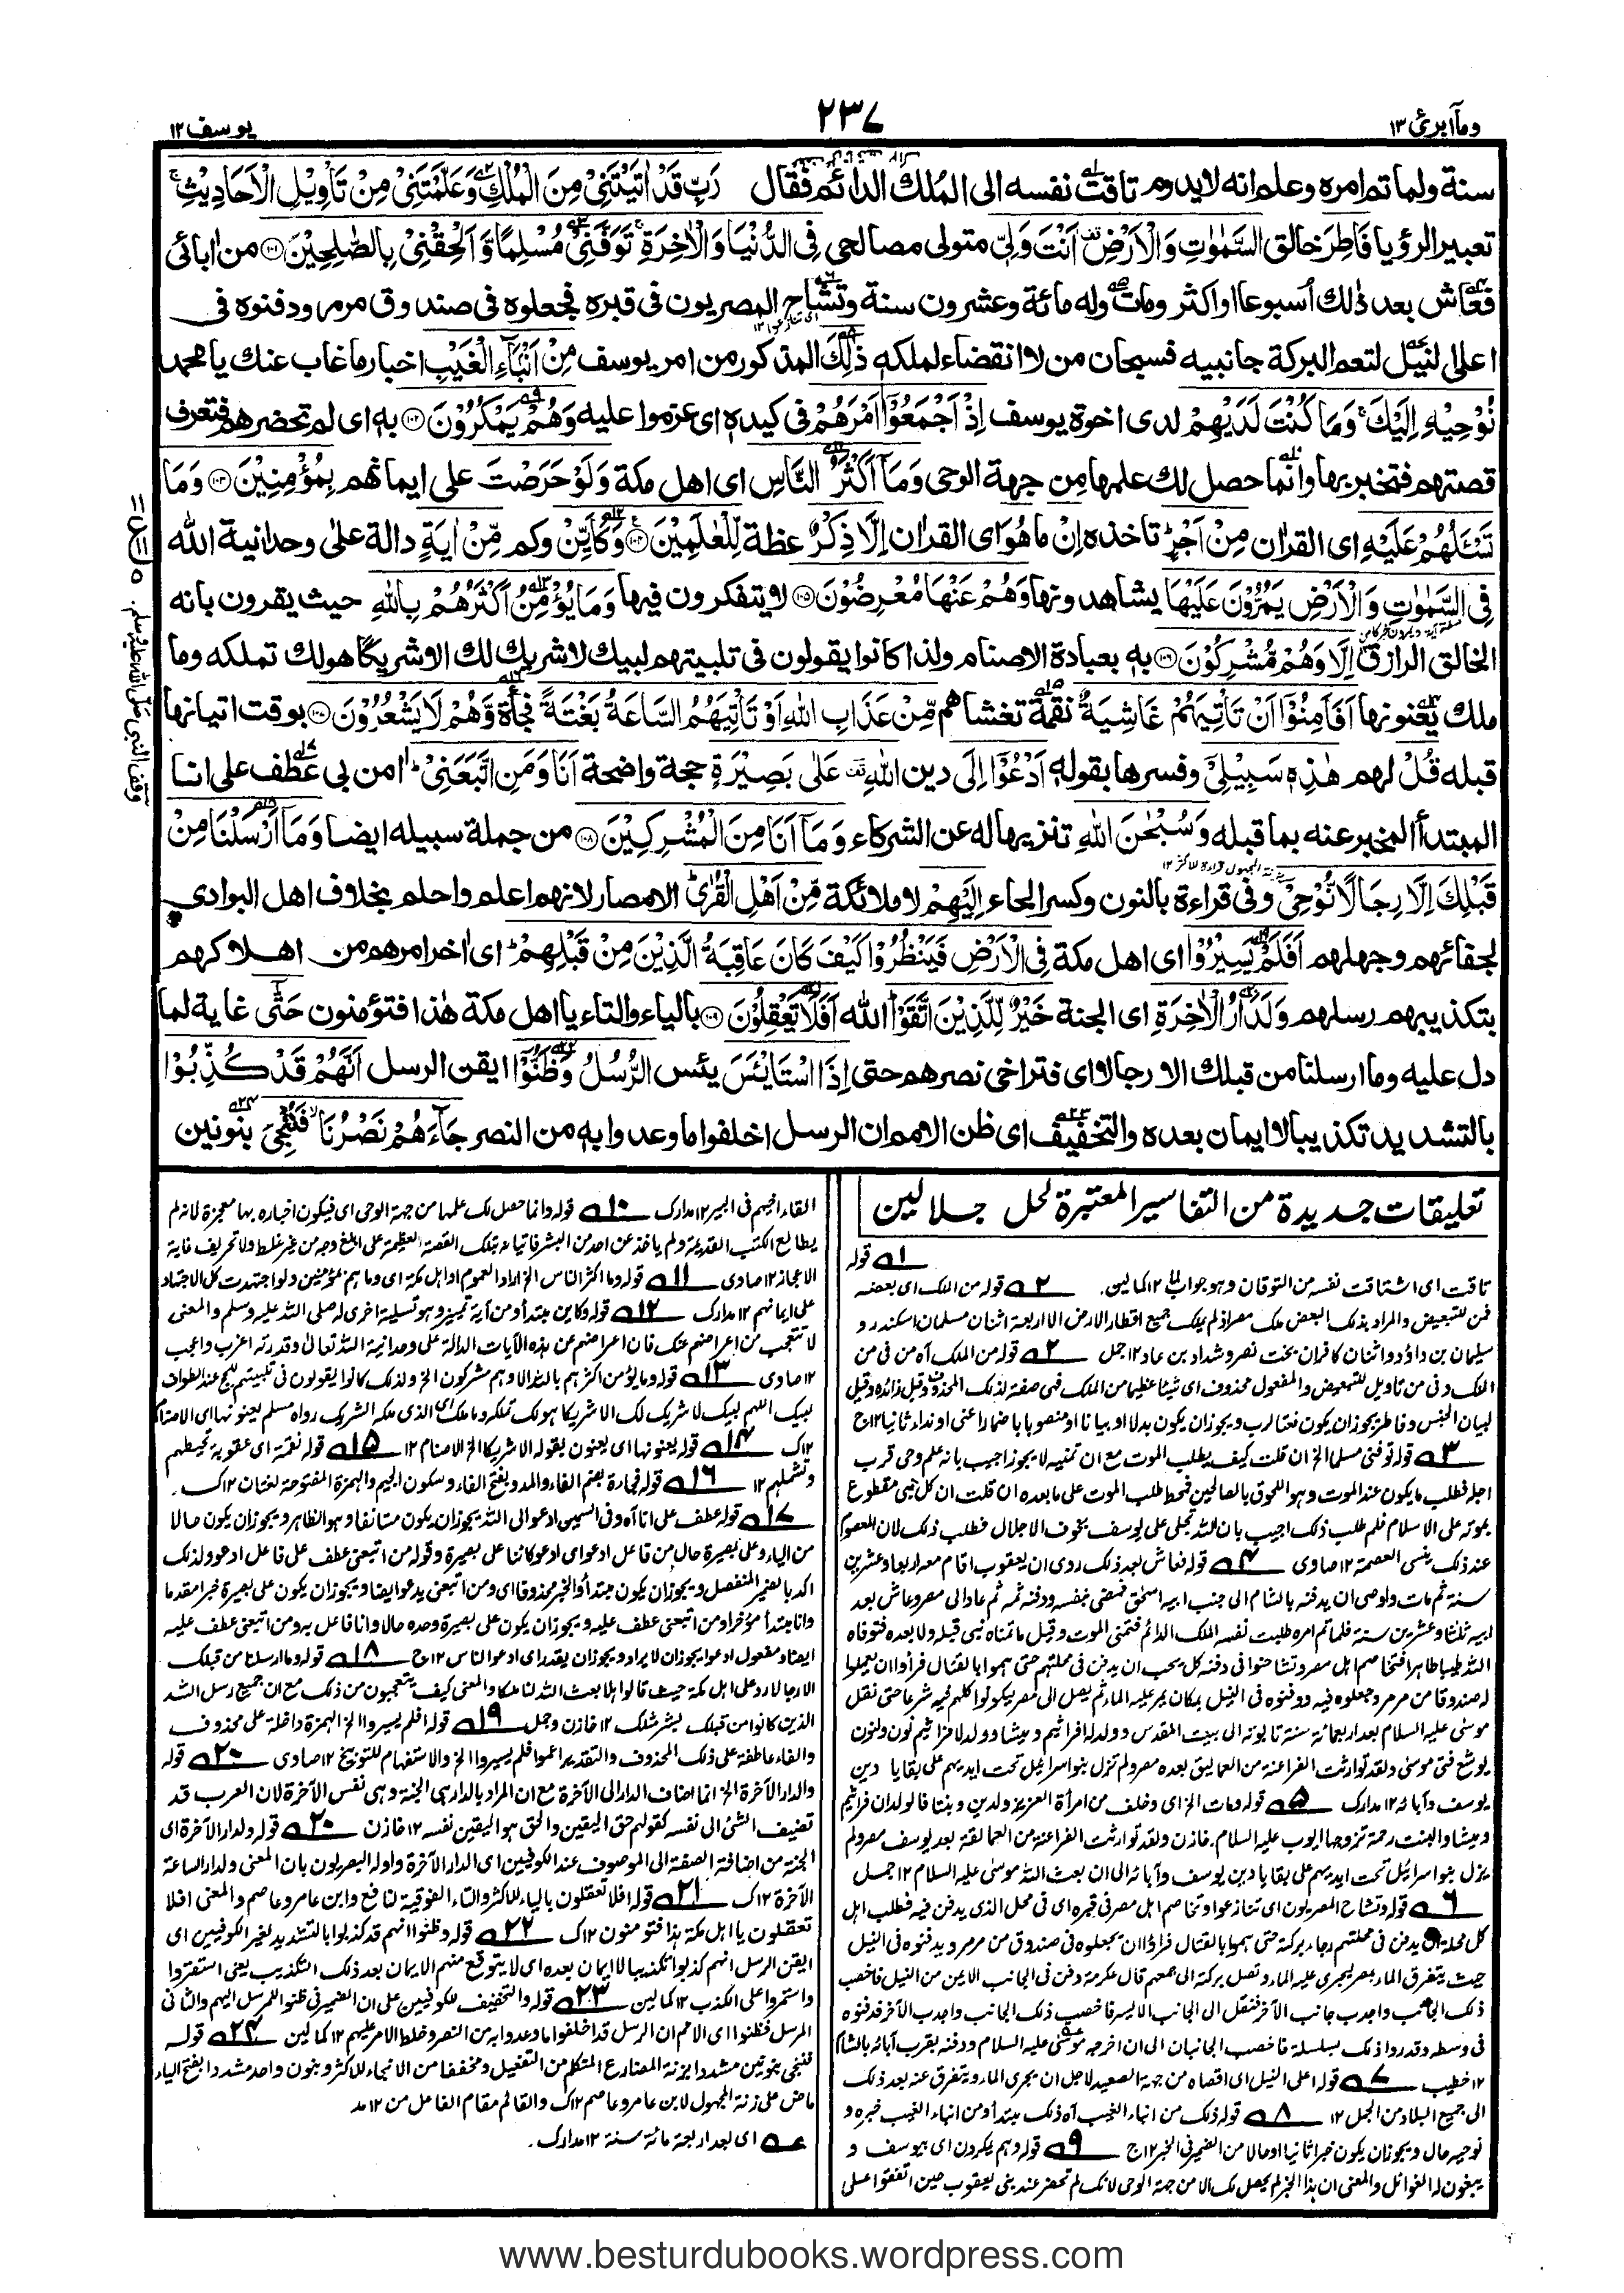 وما أبرئ ١٣
٢٣٧
يوسف ١٢
سنة ولما تم امره وعلم انه لا يدوم تاقت نفسه الى الملك الدائم فقال رَبِّ قَدْ اٰتَيْتَنِيْ مِنَ الْمُلْكِ وَعَلَّمْتَنِيْ مِنْ تَاْوِيْلِ الْاَحَادِيْثِ ۚ
تعبير الرؤيا فَاطِرَ خالق السَّمٰوٰتِ وَالْاَرْضِ اَنْتَ وَلِيّٖ متولى مصالحى فِي الدُّنْيَا وَالْاٰخِرَةِ ۚ تَوَفَّنِيْ مُسْلِمًا وَّاَلْحِقْنِيْ بِالصّٰلِحِيْنَ ۝١٠١ من ابائى
فعاش بعد ذلك اسبوعا او اكثر ومات وله مائة وعشرون سنة وتشاح المصريون فى قبره فجعلوه فى صندوق مرمر ودفنوه فى
اعلى النيل لتعم البركة جانبيه فسبحان من لا انقضاء لملكه ذٰلِكَ المذكور من امر يوسف مِنْ اَنْۢبَآءِ الْغَيْبِ اخبار ما غاب عنك يا محمد
نُوْحِيْهِ اِلَيْكَ ۚ وَمَا كُنْتَ لَدَيْهِمْ لدى اخوة يوسف اِذْ اَجْمَعُوْٓا اَمْرَهُمْ فى كيده اى عزموا عليه وَهُمْ يَمْكُرُوْنَ ۝١٠٢ به اى لم تحضرهم فتعرف
قصتهم فتخبر بها وانما حصل لك علمها من جهة الوحى وَمَآ اَكْثَرُ النَّاسِ اى اهل مكة وَلَوْ حَرَصْتَ على ايمانهم بِمُؤْمِنِيْنَ ۝١٠٣ وَمَا
تَسْـَٔلُهُمْ عَلَيْهِ اى القران مِنْ اَجْرٍ ؕ تاخذه اِنْ ما هُوَ اى القران اِلَّا ذِكْرٌ عظة لِّلْعٰلَمِيْنَ ۝١٠٤ وَكَاَيِّنْ وكم مِّنْ اٰيَةٍ دالة على وحدانية الله
فِي السَّمٰوٰتِ وَالْاَرْضِ يَمُرُّوْنَ عَلَيْهَا يشاهدونها وَهُمْ عَنْهَا مُعْرِضُوْنَ ۝١٠٥ لا يتفكرون فيها وَمَا يُؤْمِنُ اَكْثَرُهُمْ بِاللّٰهِ حيث يقرون بانه
الخالق الرازق اِلَّا وَهُمْ مُّشْرِكُوْنَ ۝١٠٦ به بعبادة الاصنام ولذا كانوا يقولون فى تلبيتهم لبيك لا شريك لك الا شريكا هو لك تملكه وما
ملك يعنونها اَفَاَمِنُوْٓا اَنْ تَاْتِيَهُمْ غَاشِيَةٌ نقمة تغشاهم مِّنْ عَذَابِ اللّٰهِ اَوْ تَاْتِيَهُمُ السَّاعَةُ بَغْتَةً فجأة وَّهُمْ لَا يَشْعُرُوْنَ ۝١٠٧ بوقت اتيانها
قبله قُلْ لهم هٰذِهٖ سَبِيْلِيْٓ وفسرها بقوله اَدْعُوْٓا اِلَى دين اللّٰهِ عَلٰى بَصِيْرَةٍ حجة واضحة اَنَا وَمَنِ اتَّبَعَنِيْ ؕ امن بى عطف على انا
المبتدأ المخبر عنه بما قبله وَسُبْحٰنَ اللّٰهِ تنزيها له عن الشركاء وَمَآ اَنَا مِنَ الْمُشْرِكِيْنَ ۝١٠٨ من جملة سبيله ايضا وَمَآ اَرْسَلْنَا مِنْ
قَبْلِكَ اِلَّا رِجَالًا نُّوْحِيْ وفى قراءة بالنون وكسر الحاء اِلَيْهِمْ لا ملائكة مِّنْ اَهْلِ الْقُرٰى ؕ الامصار لانهم اعلم واحلم بخلاف اهل البوادى
لجفائهم وجهلهم اَفَلَمْ يَسِيْرُوْا اى اهل مكة فِي الْاَرْضِ فَيَنْظُرُوْا كَيْفَ كَانَ عَاقِبَةُ الَّذِيْنَ مِنْ قَبْلِهِمْ ؕ اى اخر امرهم من اهلاكهم
بتكذيبهم رسلهم وَلَدَارُ الْاٰخِرَةِ اى الجنة خَيْرٌ لِّلَّذِيْنَ اتَّقَوْا الله اَفَلَا تَعْقِلُوْنَ ۝١٠٩ بالياء والتاء يا اهل مكة هذا فتؤمنون حَتّٰٓى غاية لما
دل عليه وما ارسلنا من قبلك الا رجالا اى فتراخى نصرهم حتى اِذَا اسْتَايْـَٔسَ يئس الرُّسُلُ وَظَنُّوْٓا ايقن الرسل اَنَّهُمْ قَدْ كُذِّبُوْا
بالتشديد تكذيبا لا ايمان بعده والتخفيف اى ظن الامم ان الرسل اخلفوا ما وعدوا به من النصر جَآءَهُمْ نَصْرُنَا ۙ فَنُجِّيَ بنونين
تعليقات جديدة من التفاسير المعتبرة لحل جلالين
١ قوله
تاقت اى اشتاقت نفسه من التوقان وهو جواب لما ١٢ كمالين. ٢ قوله من الملك اى بعضه
فمن للتبعيض والمراد بذلك البعض ملك مصر اذ لم يملك جميع اقطار الارض الا اربعة اثنان مسلمان اسكندر و
سليمان بن داؤد واثنان كافران بخت نصر وشداد بن عاد ١٢ جمل ٢ قوله من الملك اه من فى من
لبيان الجنس وفاطر يجوز ان يكون نعتا لرب ويجوز ان يكون بدلا او بيانا او منصوبا باضمار اعنى او نداء ثانيا ١٢ ج
٣ قوله توفنى مسلما الخ ان قلت كيف يطلب الموت مع ان تمنيه لا يجوز اجيب بانه علم وحى قرب
اجله فطلب ما يكون عند الموت وهو اللحوق بالصالحين فمحط طلب الموت على ما بعده ان قلت ان كل نبى مقطوع
بموته على الاسلام فلم طلب ذلك اجيب بان الله تجلى على يوسف بخوف الاجلال فطلب ذلك لان المعصوم
عند ذلك ينسى العصمة ١٢ صاوى ٤ قوله فعاش بعد ذلك روى ان يعقوب اقام معه اربعا وعشرين
سنة ثم مات واوصى ان يدفنه بالشام الى جنب ابيه اسحٰق فمضى بنفسه ودفنه ثمه ثم عاد الى مصر وعاش بعد
ابيه ثلثا وعشرين سنة فلما تم امره طلبت نفسه الملك الدائم فتمنى الموت وقيل ما تمناه نبى قبله ولا بعده فتوفاه
الله طيبا طاهرا فتخاصم اهل مصر وتشاحوا فى دفنه كل يحب ان يدفن فى محلتهم حتى هموا بالقتال فرأوا ان يعملوا
له صندوقا من مرمر وجعلوه فيه ودفنوه فى النيل بمكان يمر عليه الماء ثم يصل الى مصر ليكونوا كلهم فيه شرعا حتى نقل
موسى عليه السلام بعد اربعمائة سنة تابوته الى بيت المقدس وولد له افراثيم وميشا وولد لافراثيم نون ولنون
يوشع فتى موسى ولقد توارثت الفراعنة من العماليق بعده مصر ولم تزل بنو اسرائيل تحت ايديهم على بقايا دين
يوسف وآبائه ١٢ مدارك ٥ قوله ومات الخ اى وخلف من امرأة العزيز ولدين وبنتا فالولدان افراثيم
وميشا والبنت رحمة تزوجها ايوب عليه السلام. خازن ولقد توارثت الفراعنة من العمالقة بعد يوسف مصر ولم
يزل بنو اسرائيل تحت ايديهم على بقايا دين يوسف وآبائه الى ان بعث الله موسى عليه السلام ١٢ جمل
٦ قوله وتشاح المصريون اى تنازعوا وتخاصم اهل مصر فى قبره اى فى محل الذى يدفن فيه فطلب اهل
كل محلة ان يدفن فى محلتهم رجاء بركته حتى هموا بالقتال فرأوا ان يجعلوه فى صندوق من مرمر ويدفنوه فى النيل
حيث يتفرق الماء بمصر ليجرى عليه الماء وتصل بركته الى جميعهم قال عكرمة دفن فى الجانب الايمن من النيل فاخصب
ذلك الجانب واجدب جانب الآخر فنقل الى الجانب الايسر فاخصب ذلك الجانب واجدب الآخر فدفنوه
فى وسطه وقدروا ذلك بسلسلة فاخصب الجانبان الى ان اخرجه موسى عليه السلام ودفنه بقرب آبائه بالشام
١٢ خطيب ٧ قوله اعلى النيل اى اقصاه من جهة الصعيد لاجل ان يجرى الماء ويتفرق عنه بعد ذلك
الى جميع البلاد من الجمل ١٢ ٨ قوله ذلك من انباء الغيب اه ذلك مبتدأ ومن انباء الغيب خبره و
نوحيه حال ويجوز ان يكون خبرا ثانيا او حالا من الضمير فى الخبر ١٢ ج ٩ قوله وهم يمكرون اى بيوسف و
يبغون له الغوائل والمعنى ان هذا الخبر لم يحصل لك الا من جهة الوحى لانك لم تحضر عند بنى يعقوب حين اتفقوا على
القاء اخيهم فى البير ١٢ مدارك ١٠ قوله وانما حصل لك علمها من جهة الوحى اى فيكون اخباره بها معجزة لانه لم
يطالع الكتب القديمة ولم ياخذ عن احد من البشر فاتيانه بتلك القصة العظيمة على ابلغ وجه من غير غلط ولا تحريف غاية
الاعجاز ١٢ صاوى ١١ قوله وما اكثر الناس الخ اراد العموم او اهل مكة اى وما هم بمؤمنين ولو اجتهدت كل الاجتهاد
على ايمانهم ١٢ مدارك ١٢ قوله وكاين مبتدأ ومن آية تمييز وهو تسلية اخرى له صلى الله عليه وسلم والمعنى
لا تتعجب من اعراضهم عنك فان اعراضهم عن هذه الآيات الدالة على وحدانية الله تعالى وقدرته اغرب واعجب
١٢ صاوى ١٣ قوله وما يؤمن اكثرهم بالله الا وهم مشركون الخ ولذلك كانوا يقولون فى تلبيتهم للحج عند الطواف
لبيك اللهم لبيك لا شريك لك الا شريكا هو لك تملكه وما ملك اى الذى ملكه الشريك رواه مسلم يعنونها اى الاصنام
١٢ ك ١٤ قوله يعنونها اى يعنون بقوله الا شريكا الخ الاصنام ١٢ ١٥ قوله نقمة اى عقوبة تحيطهم
وتشملهم ١٢ ١٦ قوله فجاءة بضم الفاء والمد وبفتح الفاء وسكون الجيم والهمزة المفتوحة لغتان ١٢ ك.
١٧ قوله عطف على انا اه وفى السمين ادعوا الى الله يجوز ان يكون مستانفا وهو الظاهر ويجوز ان يكون حالا
من الياء وعلى بصيرة حال من فاعل ادعو اى ادعو كائنا على بصيرة وقوله من اتبعنى عطف على فاعل ادعو ولذلك
اكد بالضمير المنفصل ويجوز ان يكون مبتدأ والخبر محذوفا اى ومن اتبعنى يدعو ايضا ويجوز ان يكون على بصيرة خبرا مقدما
وانا مبتدأ مؤخرا ومن اتبعنى عطف عليه ويجوز ان يكون على بصيرة وحده حالا وانا فاعل به ومن اتبعنى عطف عليه
ايضا ومفعول ادعو ايجوز ان لا يراد ويجوز ان يقدر اى ادعو الناس ١٢ ج ١٨ قوله وما ارسلنا من قبلك
الا رجالا رد على اهل مكة حيث قالوا هلا بعث الله لنا ملكا والمعنى كيف يتعجبون من ذلك مع ان جميع رسل الله
الذين كانوا من قبلك بشر مثلك ١٢ خازن وجمل ١٩ قوله افلم يسيروا الخ الهمزة داخلة على محذوف
والفاء عاطفة على ذلك المحذوف والتقدير اعموا فلم يسيروا الخ والاستفهام للتوبيخ ١٢ صاوى ٢٠ قوله
والدار الآخرة الخ انما اضاف الدار الى الآخرة مع ان المراد بالدار هى الجنة وهى نفس الآخرة لان العرب قد
تضيف الشئ الى نفسه كقولهم حق اليقين والحق هو اليقين نفسه ١٢ خازن ٢٠ قوله ولدار الآخرة اى
الجنة من اضافة الصفة الى الموصوف عند الكوفيين اى الدار الآخرة واوله البصريون بان المعنى ولدار الساعة
الآخرة ١٢ ك ٢١ قوله افلا تعقلون بالياء للاكثر والتاء الفوقية لنافع وابن عامر وعاصم والمعنى افلا
تعقلون يا اهل مكة هذا فتومنون ١٢ ك ٢٢ قوله وظنوا انهم قد كذبوا بالتشديد لغير الكوفيين اى
ايقن الرسل انهم كذبوا تكذيبا لا ايمان بعده اى لا يتوقع منهم الايمان بعد ذلك التكذيب يعنى استقروا
واستمروا على الكذب ١٢ كمالين ٢٣ قوله والتخفيف للكوفيين على ان الضمير فى ظنوا للمرسل اليهم والثانى
المرسل فظنوا اى الامم ان الرسل قد اخلفوا ما وعدوا به من النصر وخلط الامر عليهم ١٢ كمالين ٢٤ قوله
فننجى بنونين مشددا بزنة المضارع المتكلم من التفعيل ومخففا من الانجاء للاكثر وبنون واحد مشددا بفتح الياء
ماض على زنة المجهول لابن عامر وعاصم ١٢ ك والقائم مقام الفاعل من ١٢ مد
عه اى بعد اربعة مائة سنة ١٢ مدارك.
وقف النبى صلى الله عليه وسلم
www.besturdubooks.wordpress.com